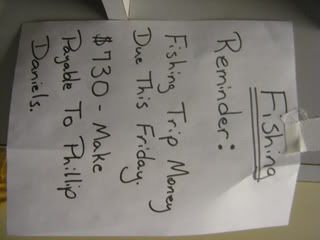 Fishing
Reminder:
Fishing Trip Money
Due This Friday.
$730 - Make
Payable To Phillip
Daniels.